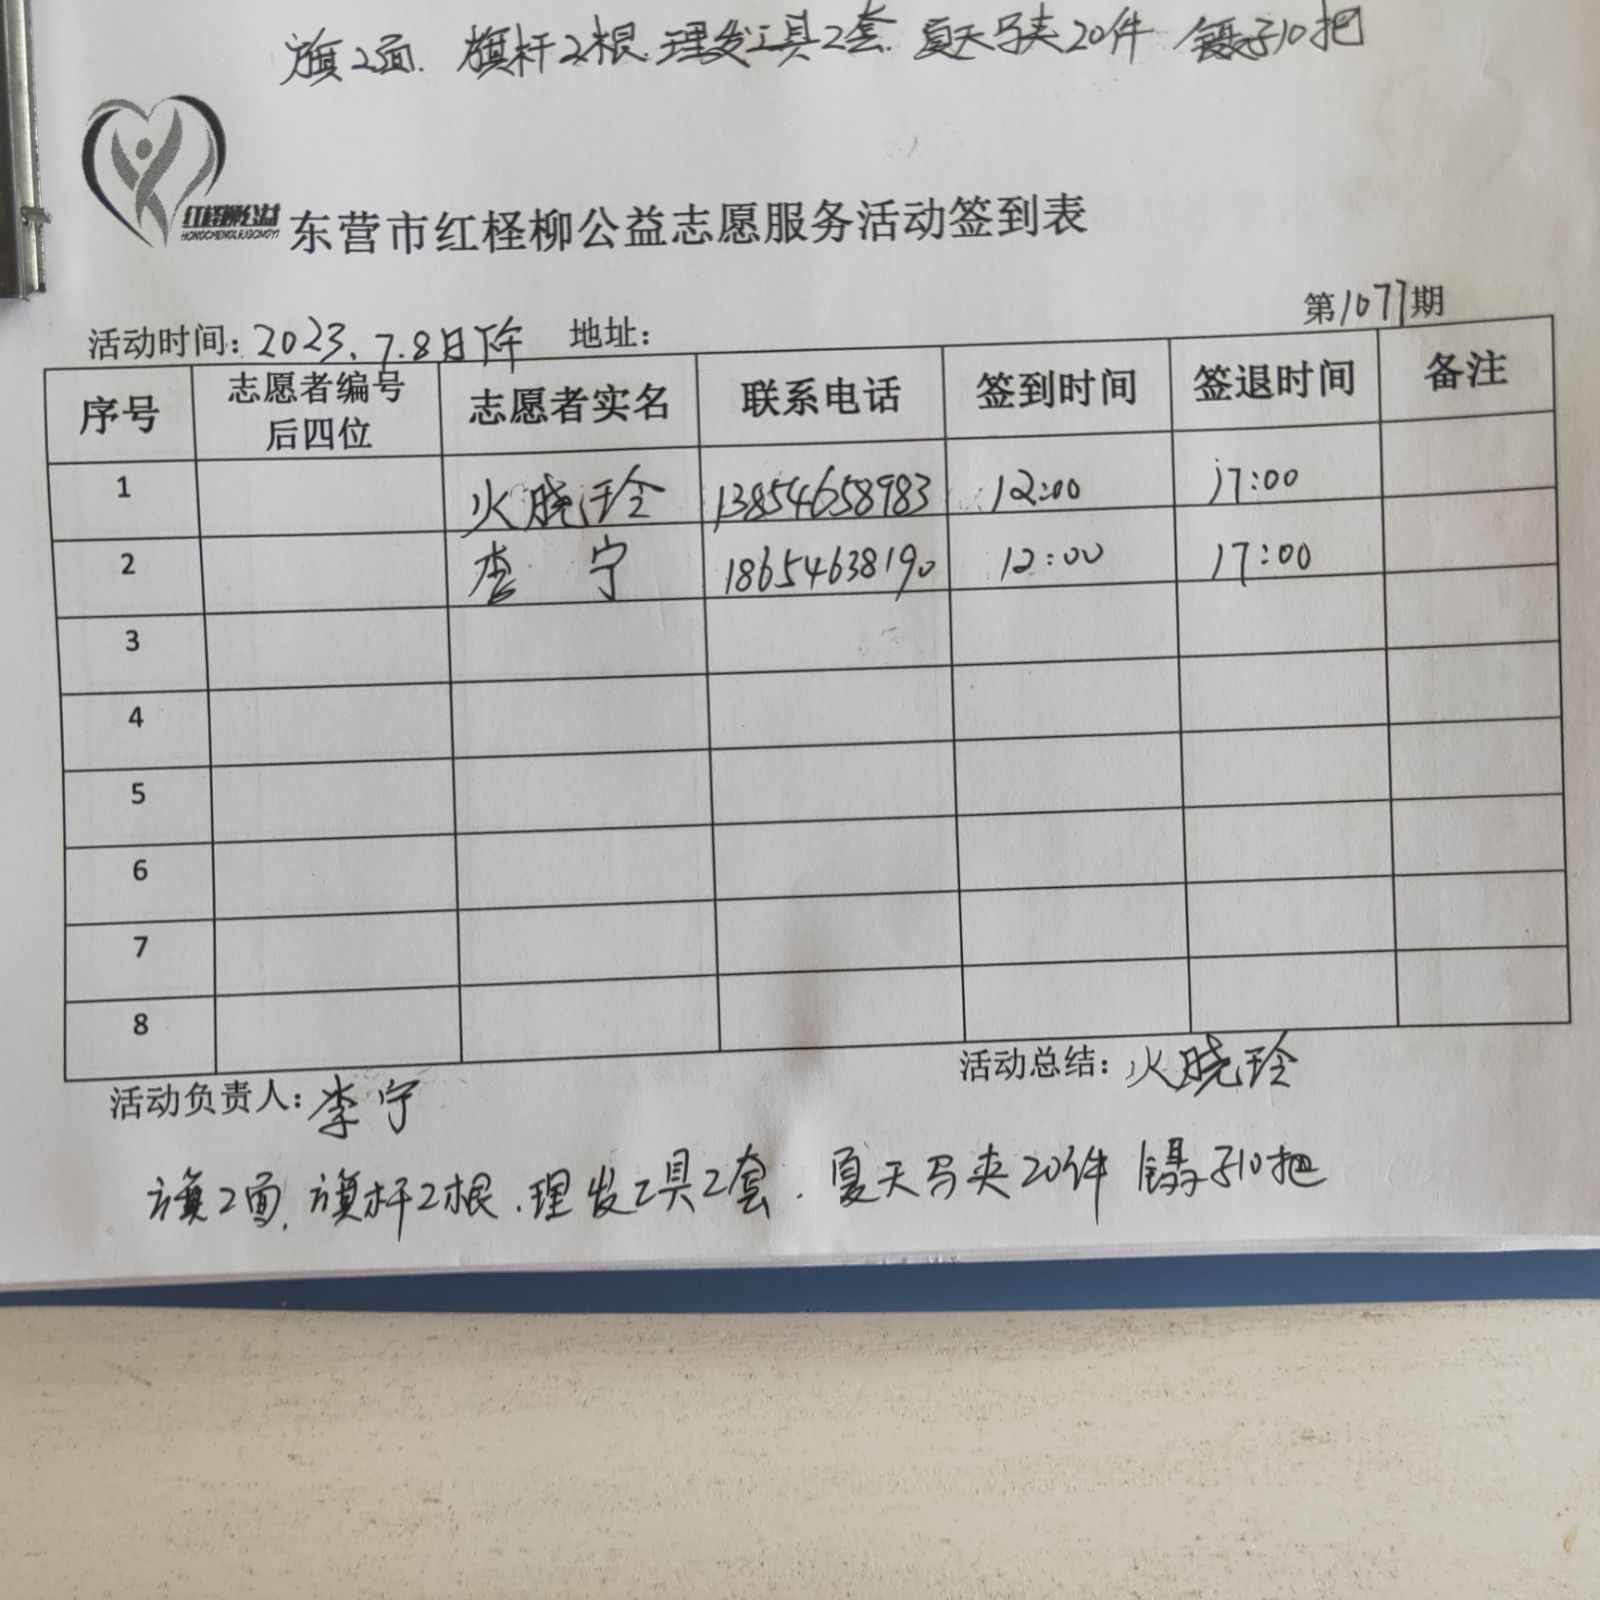 旗2面. 旗杆2根. 理发工具2套. 夏天马夹20件 镊子10把
红柽柳公益
HONGCHENGLIUGONGYI
东营市红柽柳公益志愿服务活动签到表
第1077期
活动时间: 2023.7.8日下午 地址:
序号 志愿者编号后四位 志愿者实名 联系电话 签到时间 签退时间 备注
1 火晓玲 13854658983 12:00 17:00
2 李宁 18654638190 12:00 17:00
3
4
5
6
7
8
活动负责人: 李宁 活动总结: 火晓玲
旗2面. 旗杆2根. 理发工具2套. 夏天马夹20件 镊子10把